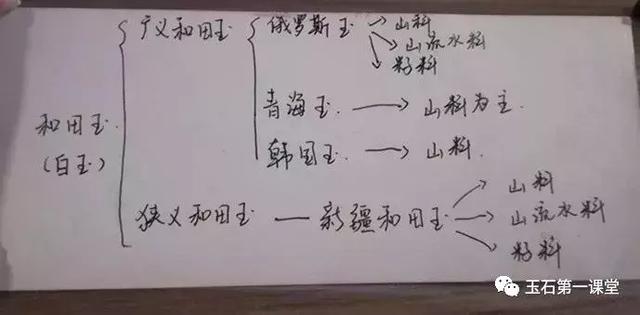 广义和田玉
俄罗斯玉 → 山料
→ 山流水料
→ 籽料
青海玉. → 山料为主.
和田玉.
(白玉)
韩国玉. → 山料.
狭义和田玉 — 新疆和田玉
→ 山料
→ 山流水料
→ 籽料
玉石第一课堂